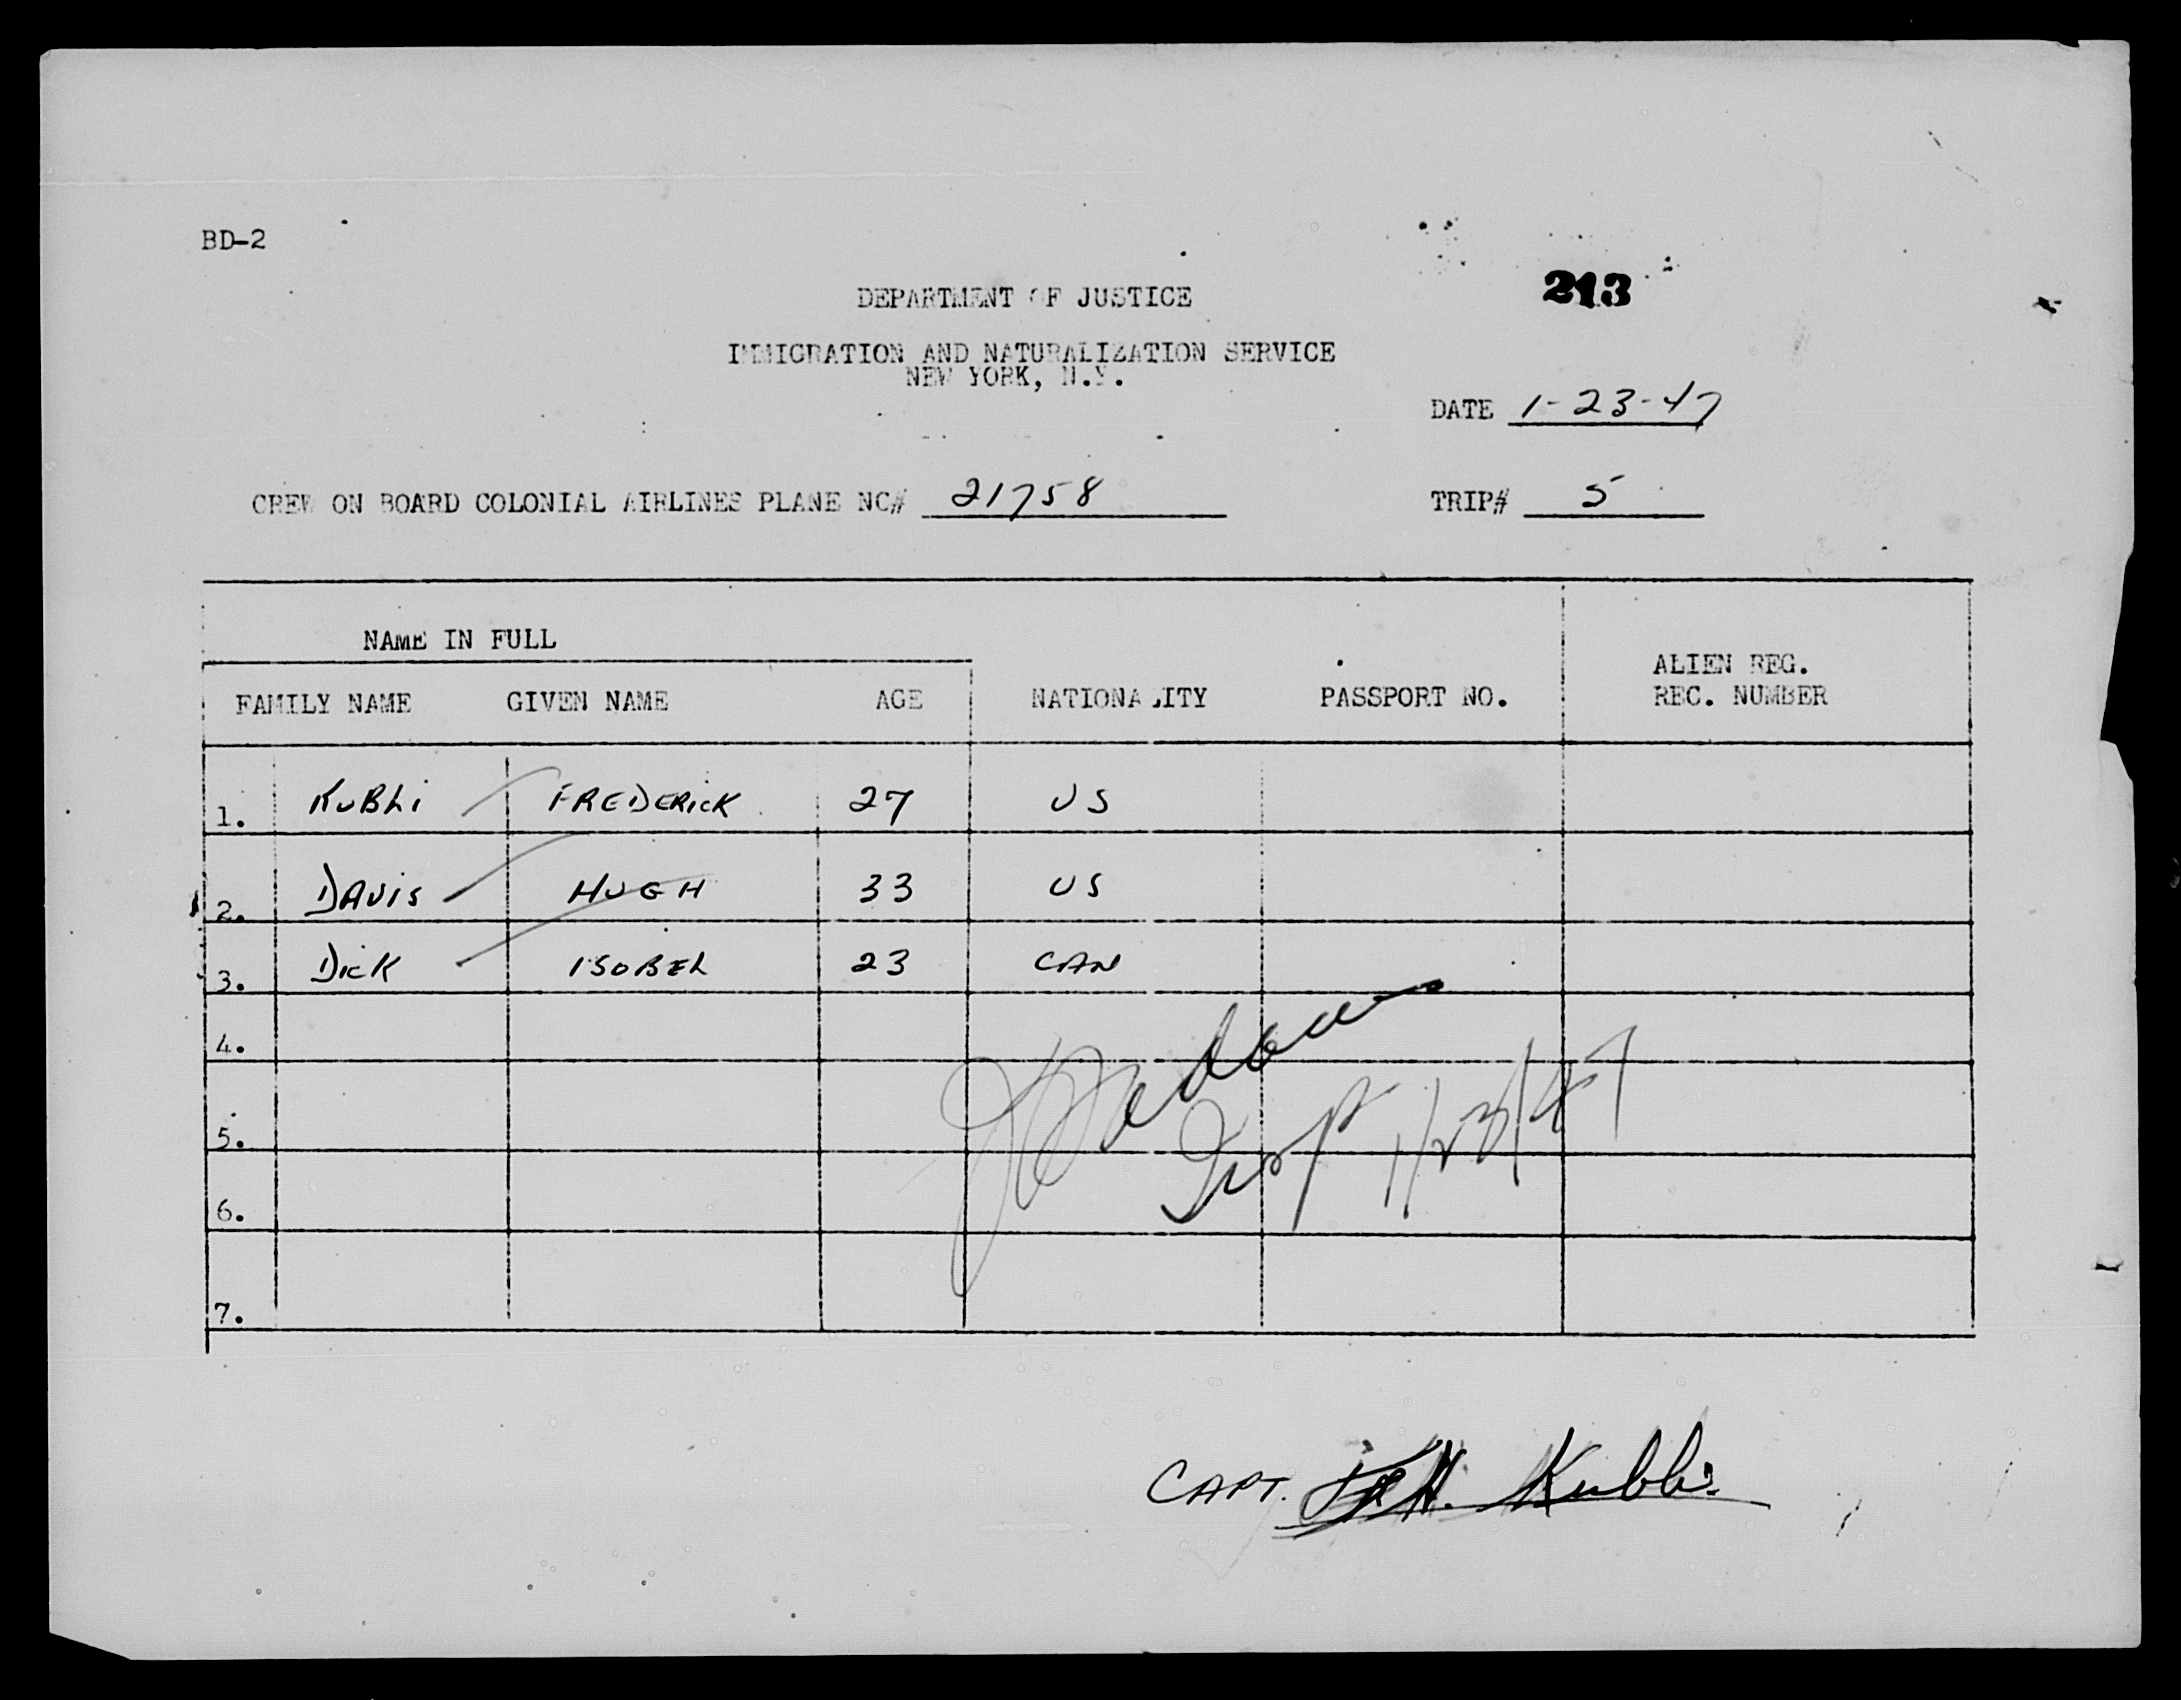 BD-2
213
DEPARTMENT OF JUSTICE
IMMIGRATION AND NATURALIZATION SERVICE
NEW YORK, N.Y.
DATE 1-23-47
CREW ON BOARD COLONIAL AIRLINES PLANE NC# 21758 TRIP# 5
NAME IN FULL
FAMILY NAME GIVEN NAME AGE NATIONALITY PASSPORT NO. ALIEN REG. REC. NUMBER
1. KUBLI FREDERICK 27 US
2. DAVIS HUGH 33 US
3. DICK ISOBEL 23 CAN
4.
5.
6.
7.
Insp 1/23/47
CAPT. F.H. Kubli